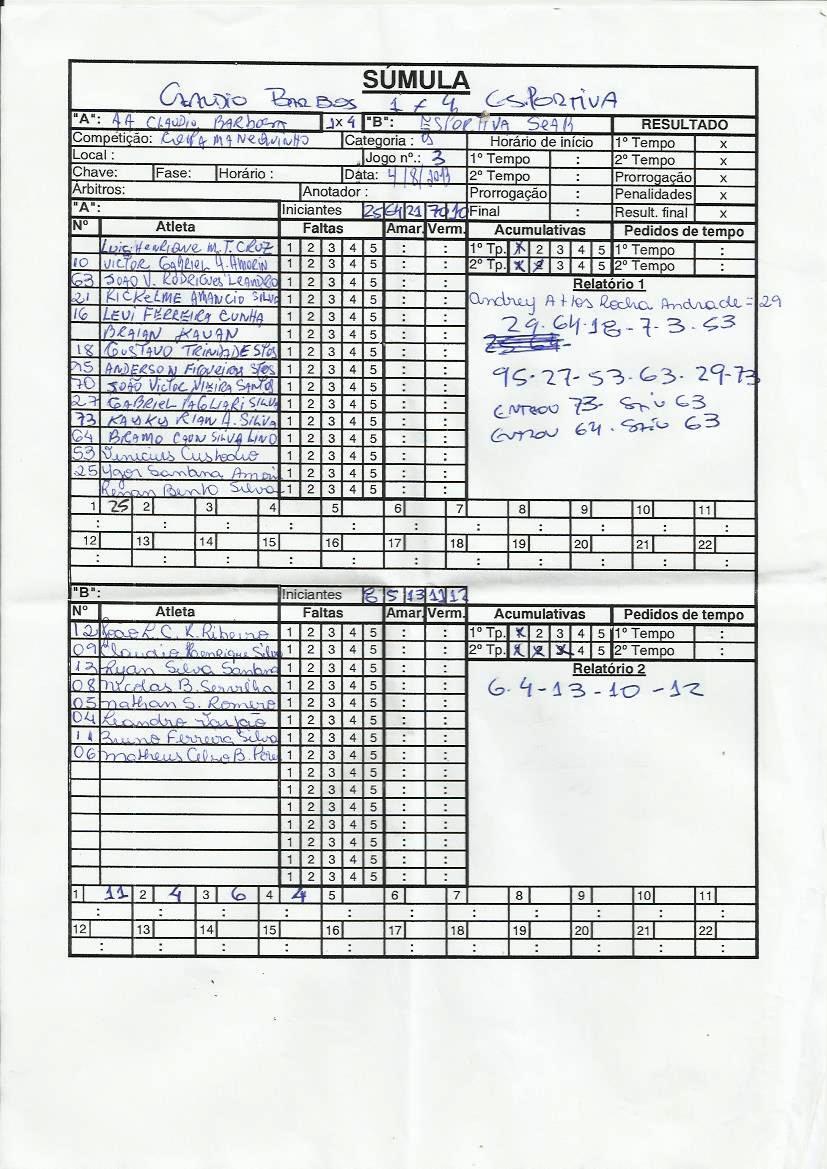 SÚMULA
CLAUDIO BARBOS 1 x 4 ESPORTIVA
"A": AA CLAUDIO BARBOSA 1x4 "B": ESPORTIVA SEAB RESULTADO
Competição: COPA MANEQUINHO Categoria : 03 Horário de início 1º Tempo x
Local : Jogo nº.: 3 1º Tempo : 2º Tempo x
Chave: Fase: Horário : Data: 4/8/2013 2º Tempo : Prorrogação x
Árbitros: Anotador : Prorrogação : Penalidades x
"A": Iniciantes 25 64 21 70 10 Final : Result. final x
Nº Atleta Faltas Amar. Verm. Acumulativas Pedidos de tempo
LUIS HENRIQUE M.T. CRUZ 1 2 3 4 5 : : 1º Tp. X 2 3 4 5 1º Tempo :
10 VICTOR GABRIEL A. AMORIN 1 2 3 4 5 : : 2º Tp. X X 3 4 5 2º Tempo :
63 JOAO V. RODRIGUES LEANDRO 1 2 3 4 5 : : Relatório 1
21 RICKELME AMANCIO SILVA 1 2 3 4 5 : : Andrey Atlos Rocha Andrade = 29
16 LEVI FERREIRA CUNHA 1 2 3 4 5 : : 29-64-18-7-3-53
BRAIAN KAUAN 1 2 3 4 5 : :
18 GUSTAVO TRINDADE STOS 1 2 3 4 5 : :
95 ANDERSON FIGUEIRA STOS 1 2 3 4 5 : : 95-27-53-63-29-73
70 JOÃO VICTOR VIEIRA SANTOS 1 2 3 4 5 : :
27 GABRIEL PAGLIARI SILVA 1 2 3 4 5 : : ENTROU 73- SAIU 63
73 KAYKY RIAN A. SILIVA 1 2 3 4 5 : : ENTROU 64- SAIU 63
64 BRAMO CAON SILVA LINO 1 2 3 4 5 : :
53 Vinicius Custodio 1 2 3 4 5 : :
25 Ygor Santana 1 2 3 4 5 : :
Renan Bento Silva 1 2 3 4 5 : :
1 25 2 3 4 5 6 7 8 9 10 11
: : : : : : : : : : :
12 13 14 15 16 17 18 19 20 21 22
: : : : : : : : : : :
"B": Iniciantes 8 5 13 11 12
Nº Atleta Faltas Amar. Verm. Acumulativas Pedidos de tempo
12 Joao L. C. R. Ribeiro 1 2 3 4 5 : : 1º Tp. X 2 3 4 5 1º Tempo :
09 Claudio Henrique Silva 1 2 3 4 5 : : 2º Tp. X X X 4 5 2º Tempo :
13 Ryan Silva Santana 1 2 3 4 5 : : Relatório 2
08 Nicolas B. Servilha 1 2 3 4 5 : : 6.4-13-10-12
05 Nathan S. Romero 1 2 3 4 5 : :
04 Leandro 1 2 3 4 5 : :
11 Bruno Ferreira Silva 1 2 3 4 5 : :
06 Matheus Celso B. 1 2 3 4 5 : :
1 2 3 4 5 : :
1 2 3 4 5 : :
1 2 3 4 5 : :
1 2 3 4 5 : :
1 2 3 4 5 : :
1 2 3 4 5 : :
1 2 3 4 5 : :
1 11 2 4 3 6 4 4 5 6 7 8 9 10 11
: : : : : : : : : : :
12 13 14 15 16 17 18 19 20 21 22
: : : : : : : : : : :